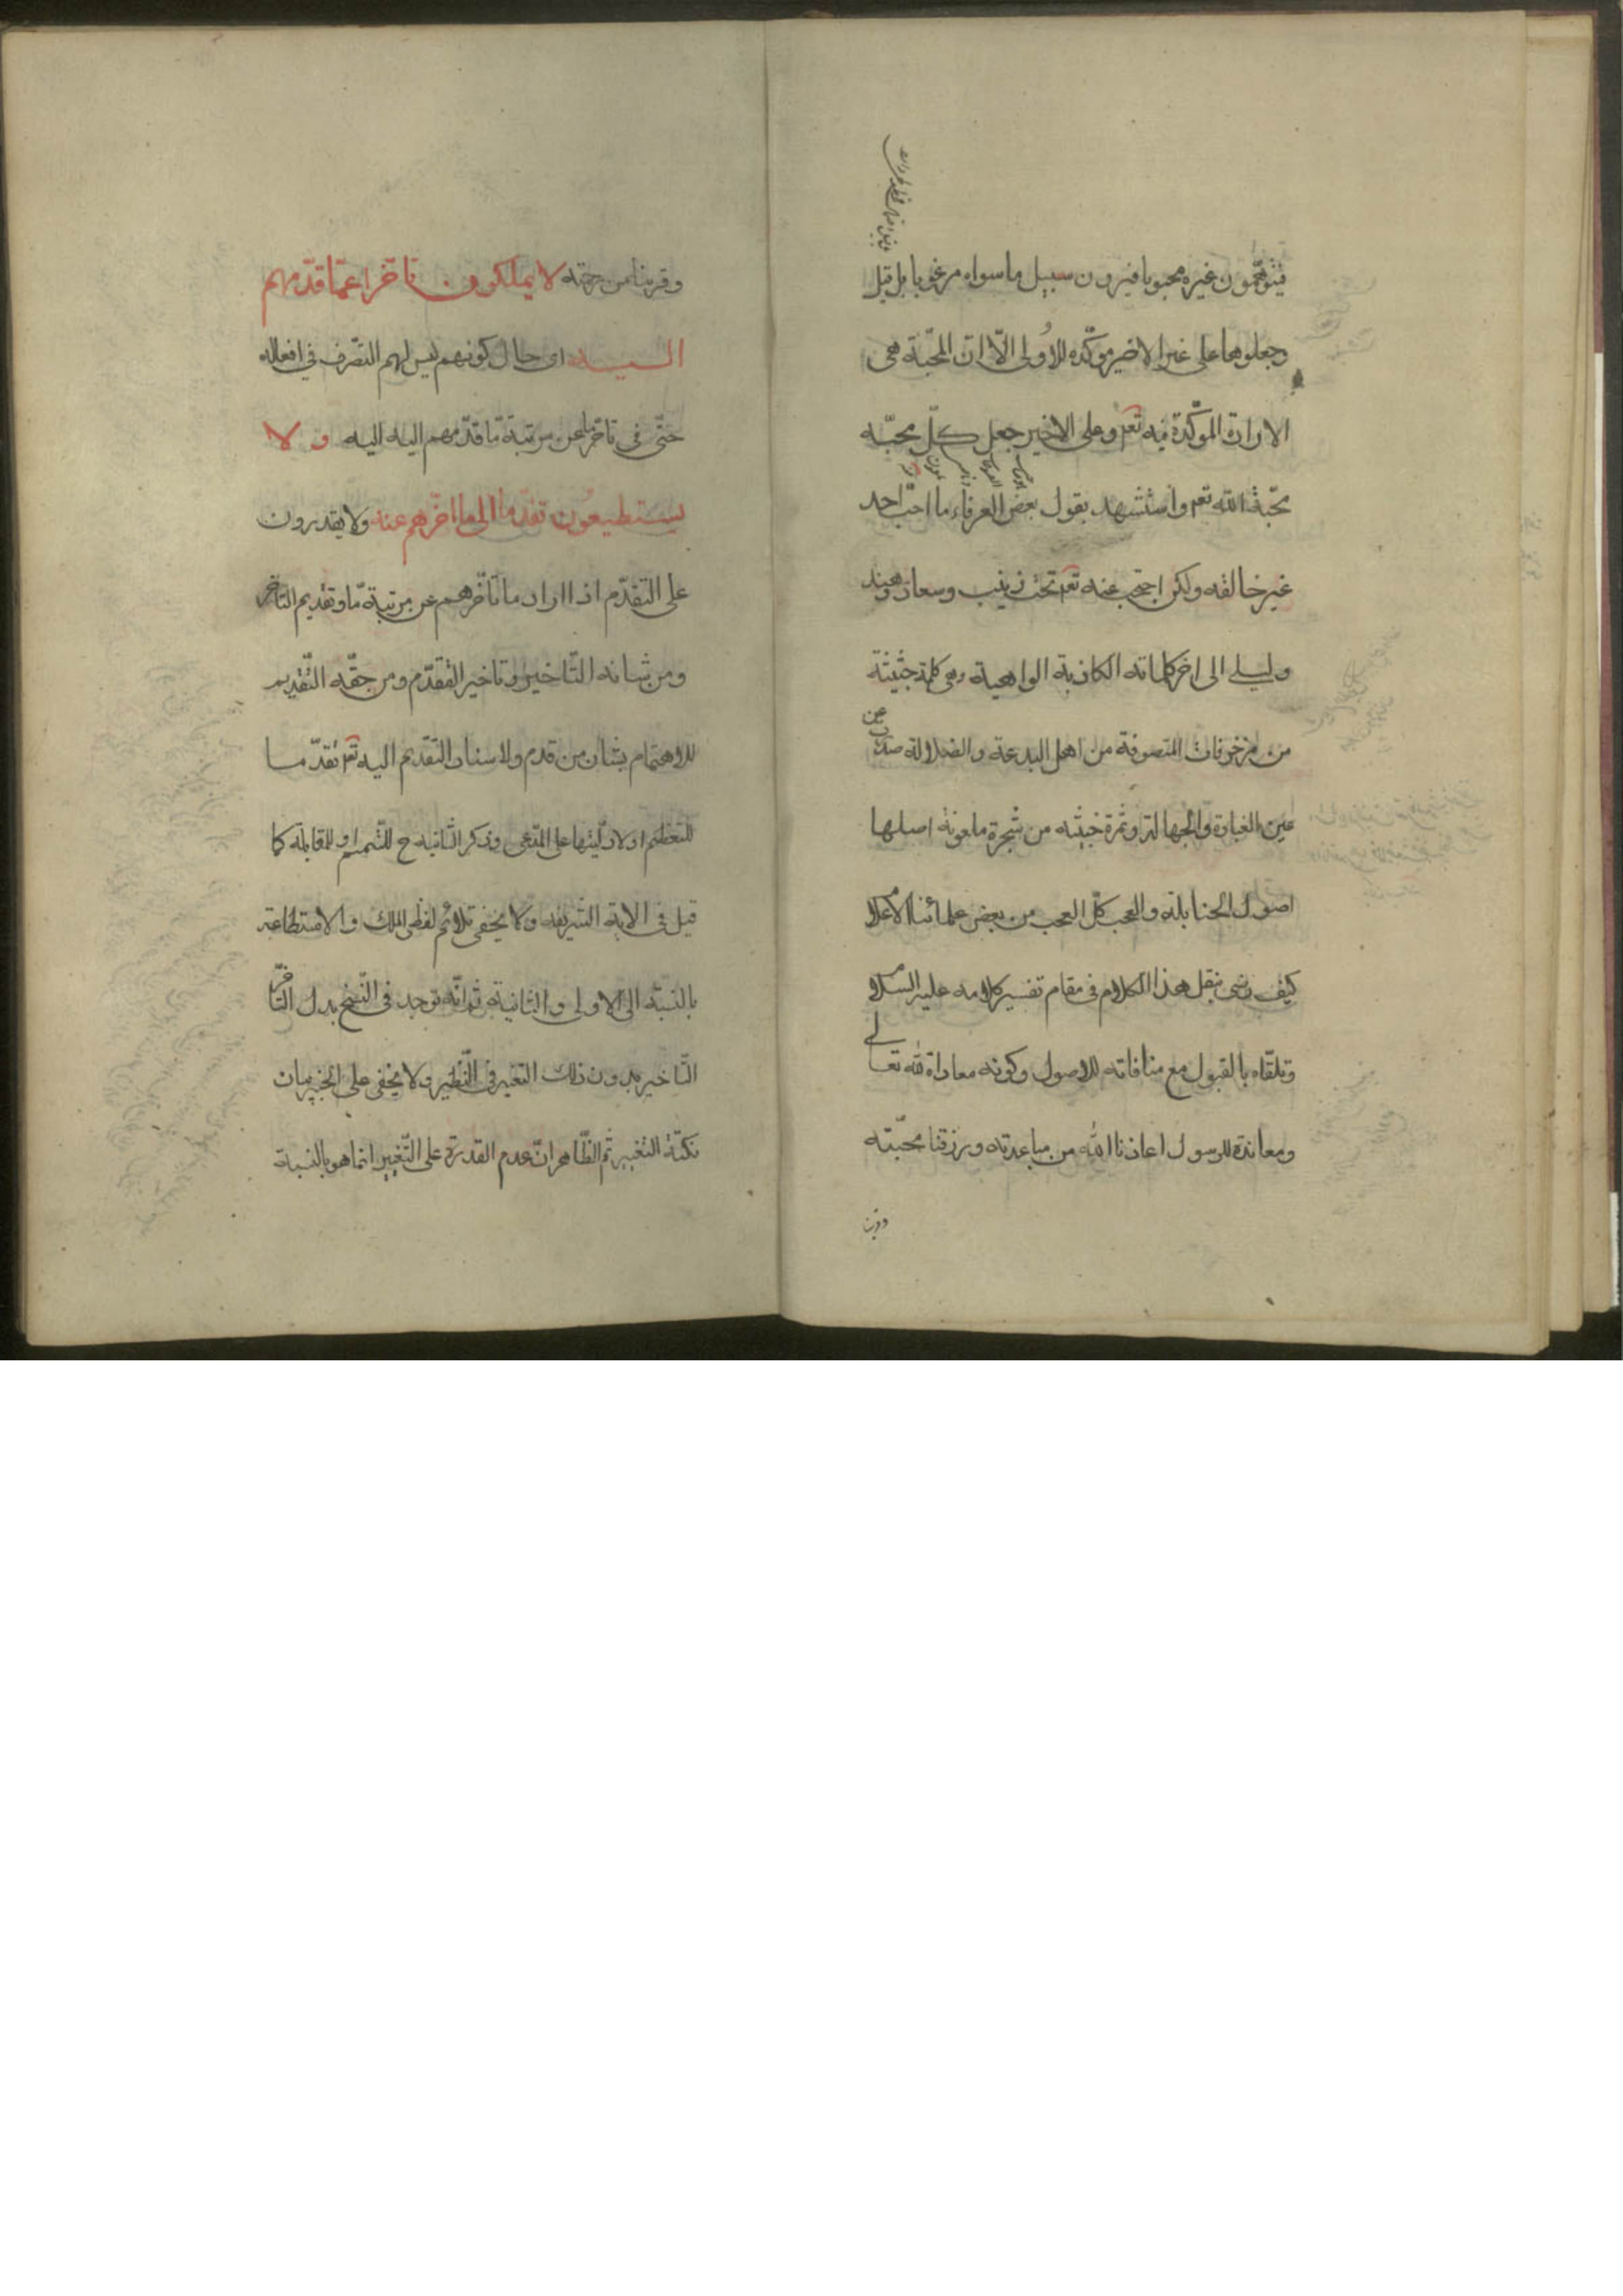 فيتوهّمون غيره محبوبا فيرون سبيل ما سواه مرغوبا بل قيل
وجعلوها على غير الاخير مؤكّده للاُولى الّا انّ المحبّة هى
الارادة المؤكّدة فيه تعم وعلى الاخير جعل كلّ محبّه
محبّة الله تعم واستشهد بقول بعض العرفاء ما احبّ احد
غير خالقه ولكن احتجب عنه تعم تحت زينب وسعاد وهند
وليلى الى اخر كلماته الكاذبة الواهية وهى كلمة خبيثة
من مزخرفات المتصوفة من اهل البدعة والضلالة صدرت عن
عين الغباوة والجهالة وثمرة خبيثه من شجرة ملعونه اصلها
اصول الحنابلة والعجب كلّ العجب من بعض علمائنا الاعلام
كيف رضى بنقل هذا الكلام فى مقام تفسير كلامه عليه السلام
وتلقّاه بالقبول مع منافاته للاصول وكونه معاداة لله تعالى
ومعاندة للرسول اعاذنا الله من مباعدته ورزقنا محبّته
وقربنا من رحمته لا يملكون تاخّرا عمّا قدّمهم
اليه اى حال كونهم ليس لهم التصّرف فى افعاله
حتّى فى تاخّر ما عن مرتبة ما قدّمهم اليه اليه و لا
يستطيعُون تقدّما الى ما اخّرهم عنه ولا يقدرون
على التقدّم اذا اراد ما تاخّرهم عن مرتبة مّا وتقديم التاخر
ومن شانه التّاخير وتاخير المقدّم ومن حقّه التّقديم
للاهتمام بشان من قدم ولاسناد التّقديم اليه تعم تقدّما
للتعظيم او لاوليّتها على المدّعى وذكر الثّانيه ح للتّتميم او للمقابلة كما
قيل فى الاية الشريفه ولا يخفى تلائم لفظى الملك والاستطاعة
بالنسبّة الى الاولى والثانية ثم انّه توجد فى النّسخ بدل التّاخّر
التّاخير بدون ذلك التغير فى النّظير ولا يخفى على الخبير بيان
نكتة التغيير ثم الظّاهر انّ عدم القدرة على التّغيير انما هو بالنسبة